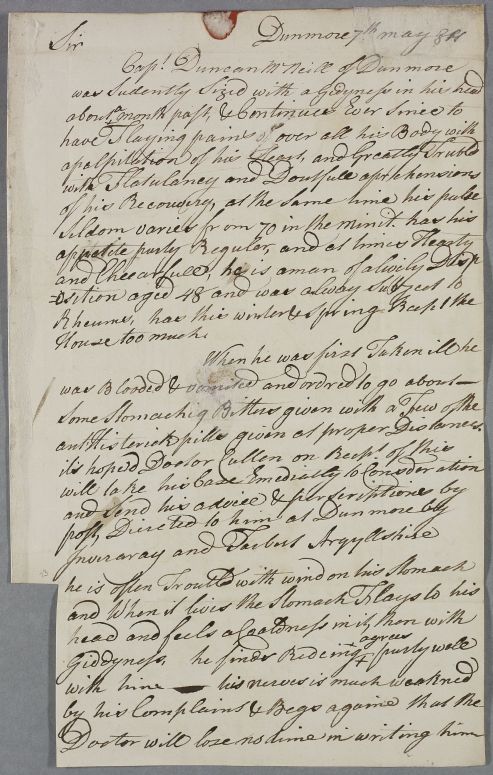 Sir Dunmore 7th may
Capt. Duncan McNeill of Dunmore
was Sudently Sized with a Gidyness in his head
about a month past, & Continues Ever Since to
have Flaying pains over all his Body with
a palpitation of his Heart, and Greatly Trubld
with Flatulancy and Doutfull aprhensions
of his Recovery, at the Same time his pulse
Sildom varies from 70 in the minit. has his
appetite purty Reguler, and at times Hearty
and Cheearfull, he is a man of a lively Disp
=osition aged 48 and was alway Subject to
Rheums, has this winter & Spring Keept the
House too much.
When he was first Taken ill he
was Blooded & vomited and ordred to go about —
Some Stomachiq Bitters given with a Few of the
antHisterick pills given at proper Distances.
its hoped Doctor Cullen on Recpt of this
will take his Case Emediatly to Consideration
and Send his advice & perscriptions by
post, Directed to him at Dunmore by
Inveraray and Tarbert Argyllshire
he is often Trould with wind on his Stomach
and When it lives the Stomach Flays to his
head and feels a Coaldness in it, then with
Giddyness, he finds Rideing agrees purty well
with him — his nerves is much weakned
by his Complains & Begs againe that the
Doctor will lose no time in writing him